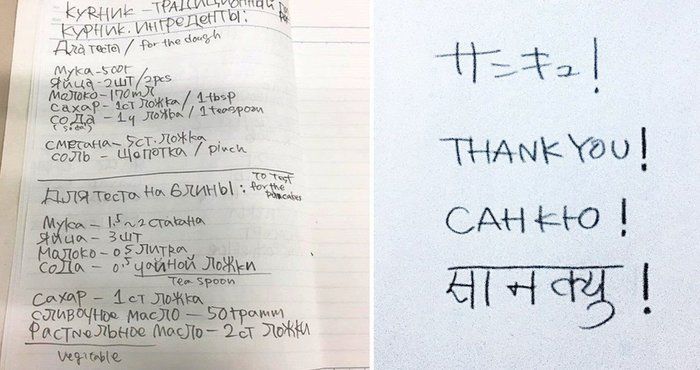 КУRНИК - ТРАДИЦИОННОЙ
КУРНИК. ИНГРЕДЕНТЫ:
Для теста / for the dough
Мука-500г
Яйца-2ШТ/2pcs
Молоко-170мл
сахар-1ст ложка/1tbsp
сода-1ч ложка/1teaspoon
(soda)
сметана-5ст.ложка
соль-щепотка/pinch
Для теста на блины: To test
for the
pancakes
Мука-1.5~2стакана
Яйца-3шт
Молоко-0.5литра
сода-0.5 чайной ложки
Teaspoon
сахар-1ст ложка
сливочное масло-50грамм
Растиельное масло-2ст ложки
Vegitable
サンキュ!
THANK YOU!
САНКЮ!
सानक्यु!